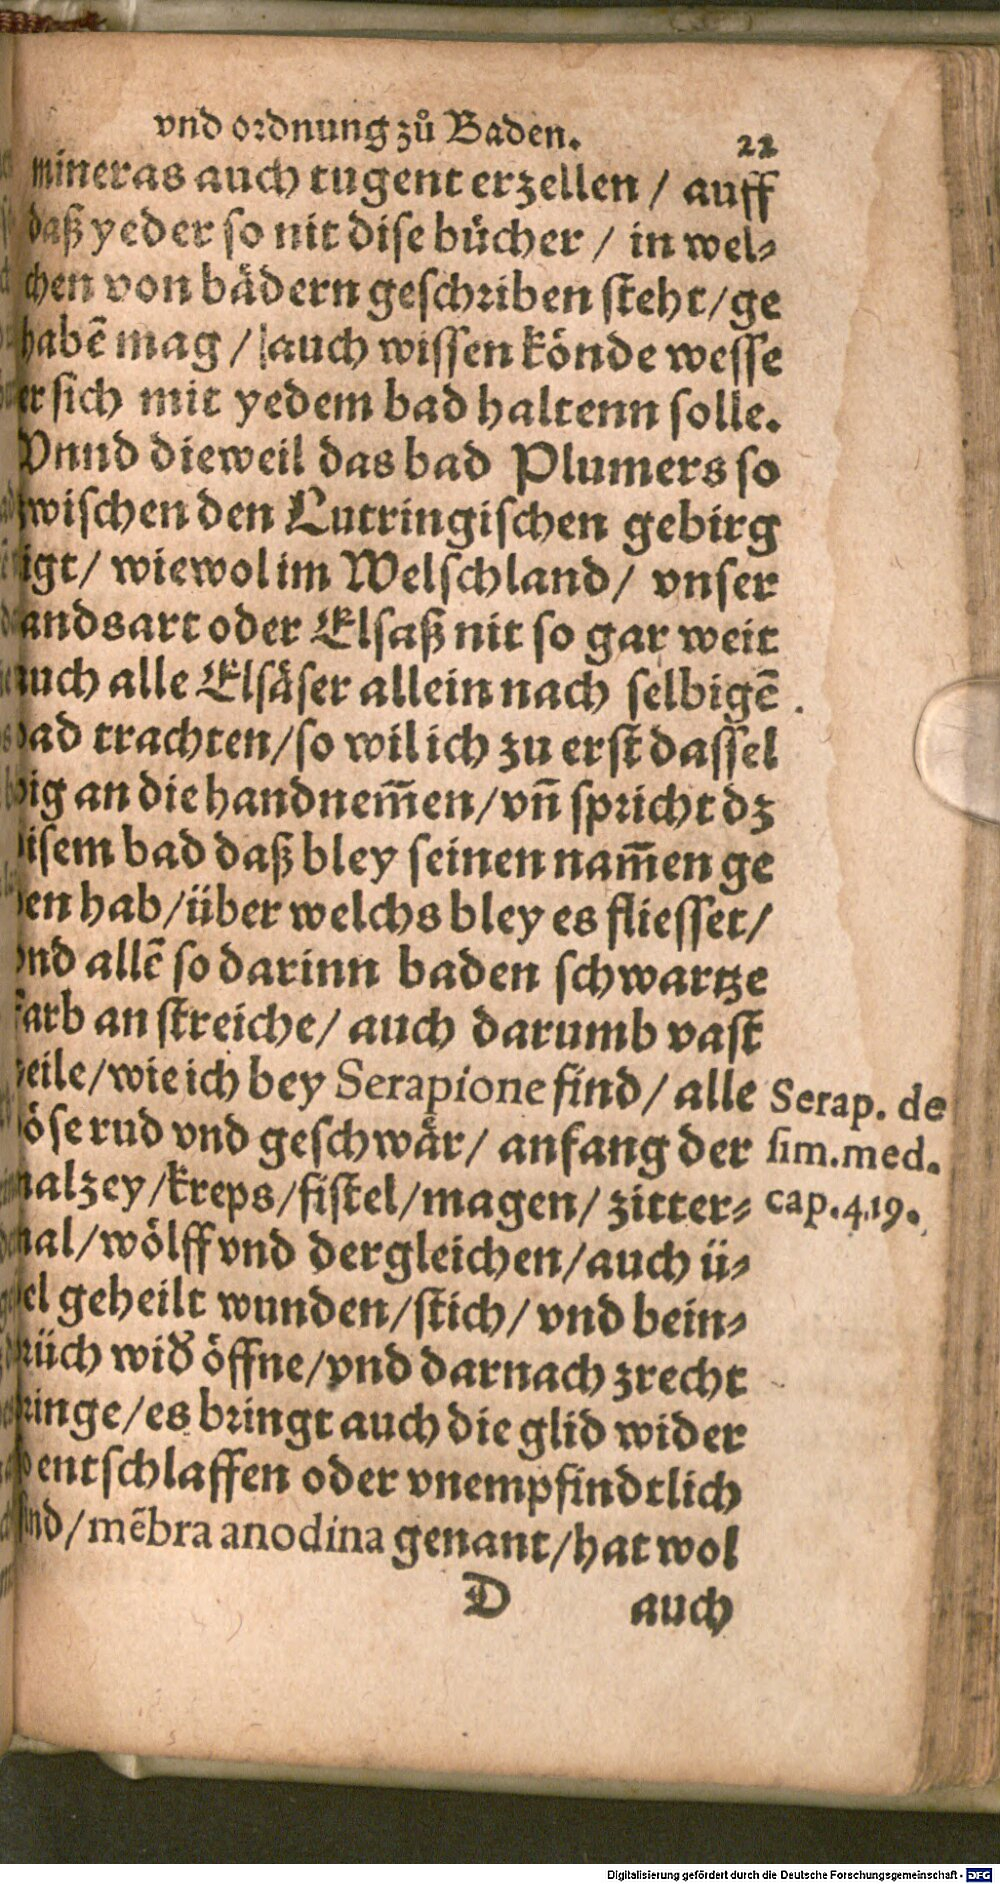 vnd ordnung zů Baden. 22
mineras auch tugent erzellen / auff
daß yeder so nit dise bücher / in wel⸗
chen von bädern geschriben steht/ge
habē mag / auch wissen könde wesse
er sich mit yedem bad haltenn solle.
Vnnd dieweil das bad Plumers so
zwischen den Lutringischen gebirg
ligt/ wiewol im Welschland/ vnser
landsart oder Elsaß nit so gar weit
auch alle Elsäser allein nach selbigē
bad trachten/so wil ich zu erst dassel
big an die hand nem̄en/vn̄ spricht dz
disem bad daß bley seinen nam̄en ge
ben hab/über welchs bley es fliesset/
vnd allē so darinn baden schwartze
farb an streiche/ auch darumb vast
heile/wie ich bey Serapione find/ alle
böse rud vnd geschwär/ anfang der
malzey/kreps/fistel/magen/zitter⸗
mal/wölff vnd dergleichen/auch ü⸗
bel geheilt wunden/stich/ vnd bein⸗
brüch wid' öffne/vnd darnach zrecht
bringe/es bringt auch die glid wider
so entschlaffen oder vnempfindtlich
sind/mēbra anodina genant/hat wol
D auch
Serap. de
sim.med.
cap.4.19.
Digitalisierung gefördert durch die Deutsche Forschungsgemeinschaft - DFG